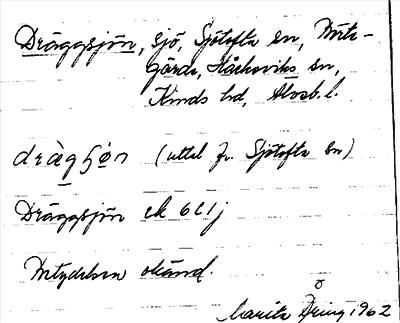 Dräggsjön, sjö, Sjötofta sn, Mårde-
gärde, Håcksviks sn,
Kinds hd, Älvsb. l.
drägsjön (uttal fr. Sjötofta sn)
Dräggsjön ek 6C1j
Betydelsen okänd.
Marita Äring 1962